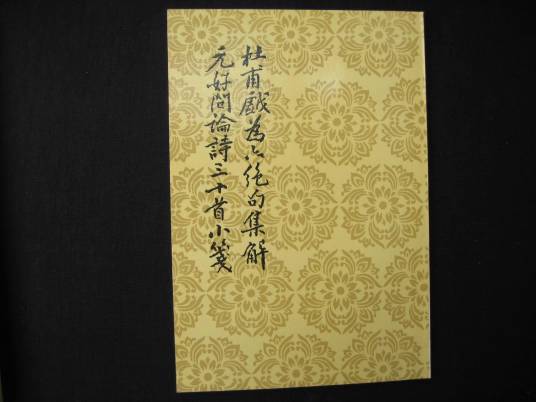 杜甫戲為六絕句集解
元好問論詩三十首小箋